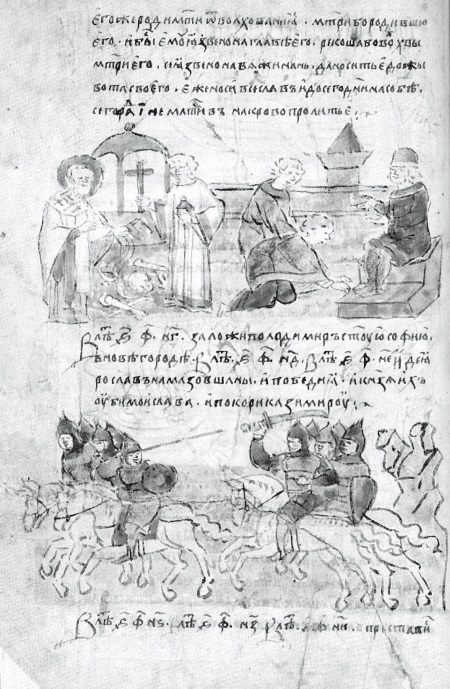 его же роди мт҃и ѿ волхованиꙗ · мт҃ри бо родивъшю
его · и бы ємоу ꙗзвено на главѣ его · рекоша бо волхвы
мт҃ри его · се ꙗзвено навѧжи на нь · да носить е до жи
вота своего · еже носи всеславъ и до сего дн҃и на собѣ ·
сего рад҃и не мл҃тивъ на кровопролитье ·
В лѣт҃ ҂ѕ҃ ф҃ н҃г · заложи володимиръ ст҃оую софию ·
в новѣгородѣ · В лѣт҃ ҂ѕ҃ ф҃ н҃д · В лѣт҃ ҂ѕ҃ ф҃ н҃е иде ꙗ
рославъ на мазовшаны · и победи ꙗ · и кнѧзѧ ихъ
оуби моислава · и покори казимироу ·
В лѣт҃ ҂ѕ҃ ф҃ н҃ѕ · лѣт҃ ҂ѕ҃ ф҃ н҃з В лѣт҃ ҂ѕ҃ ф҃ н҃и · преставис